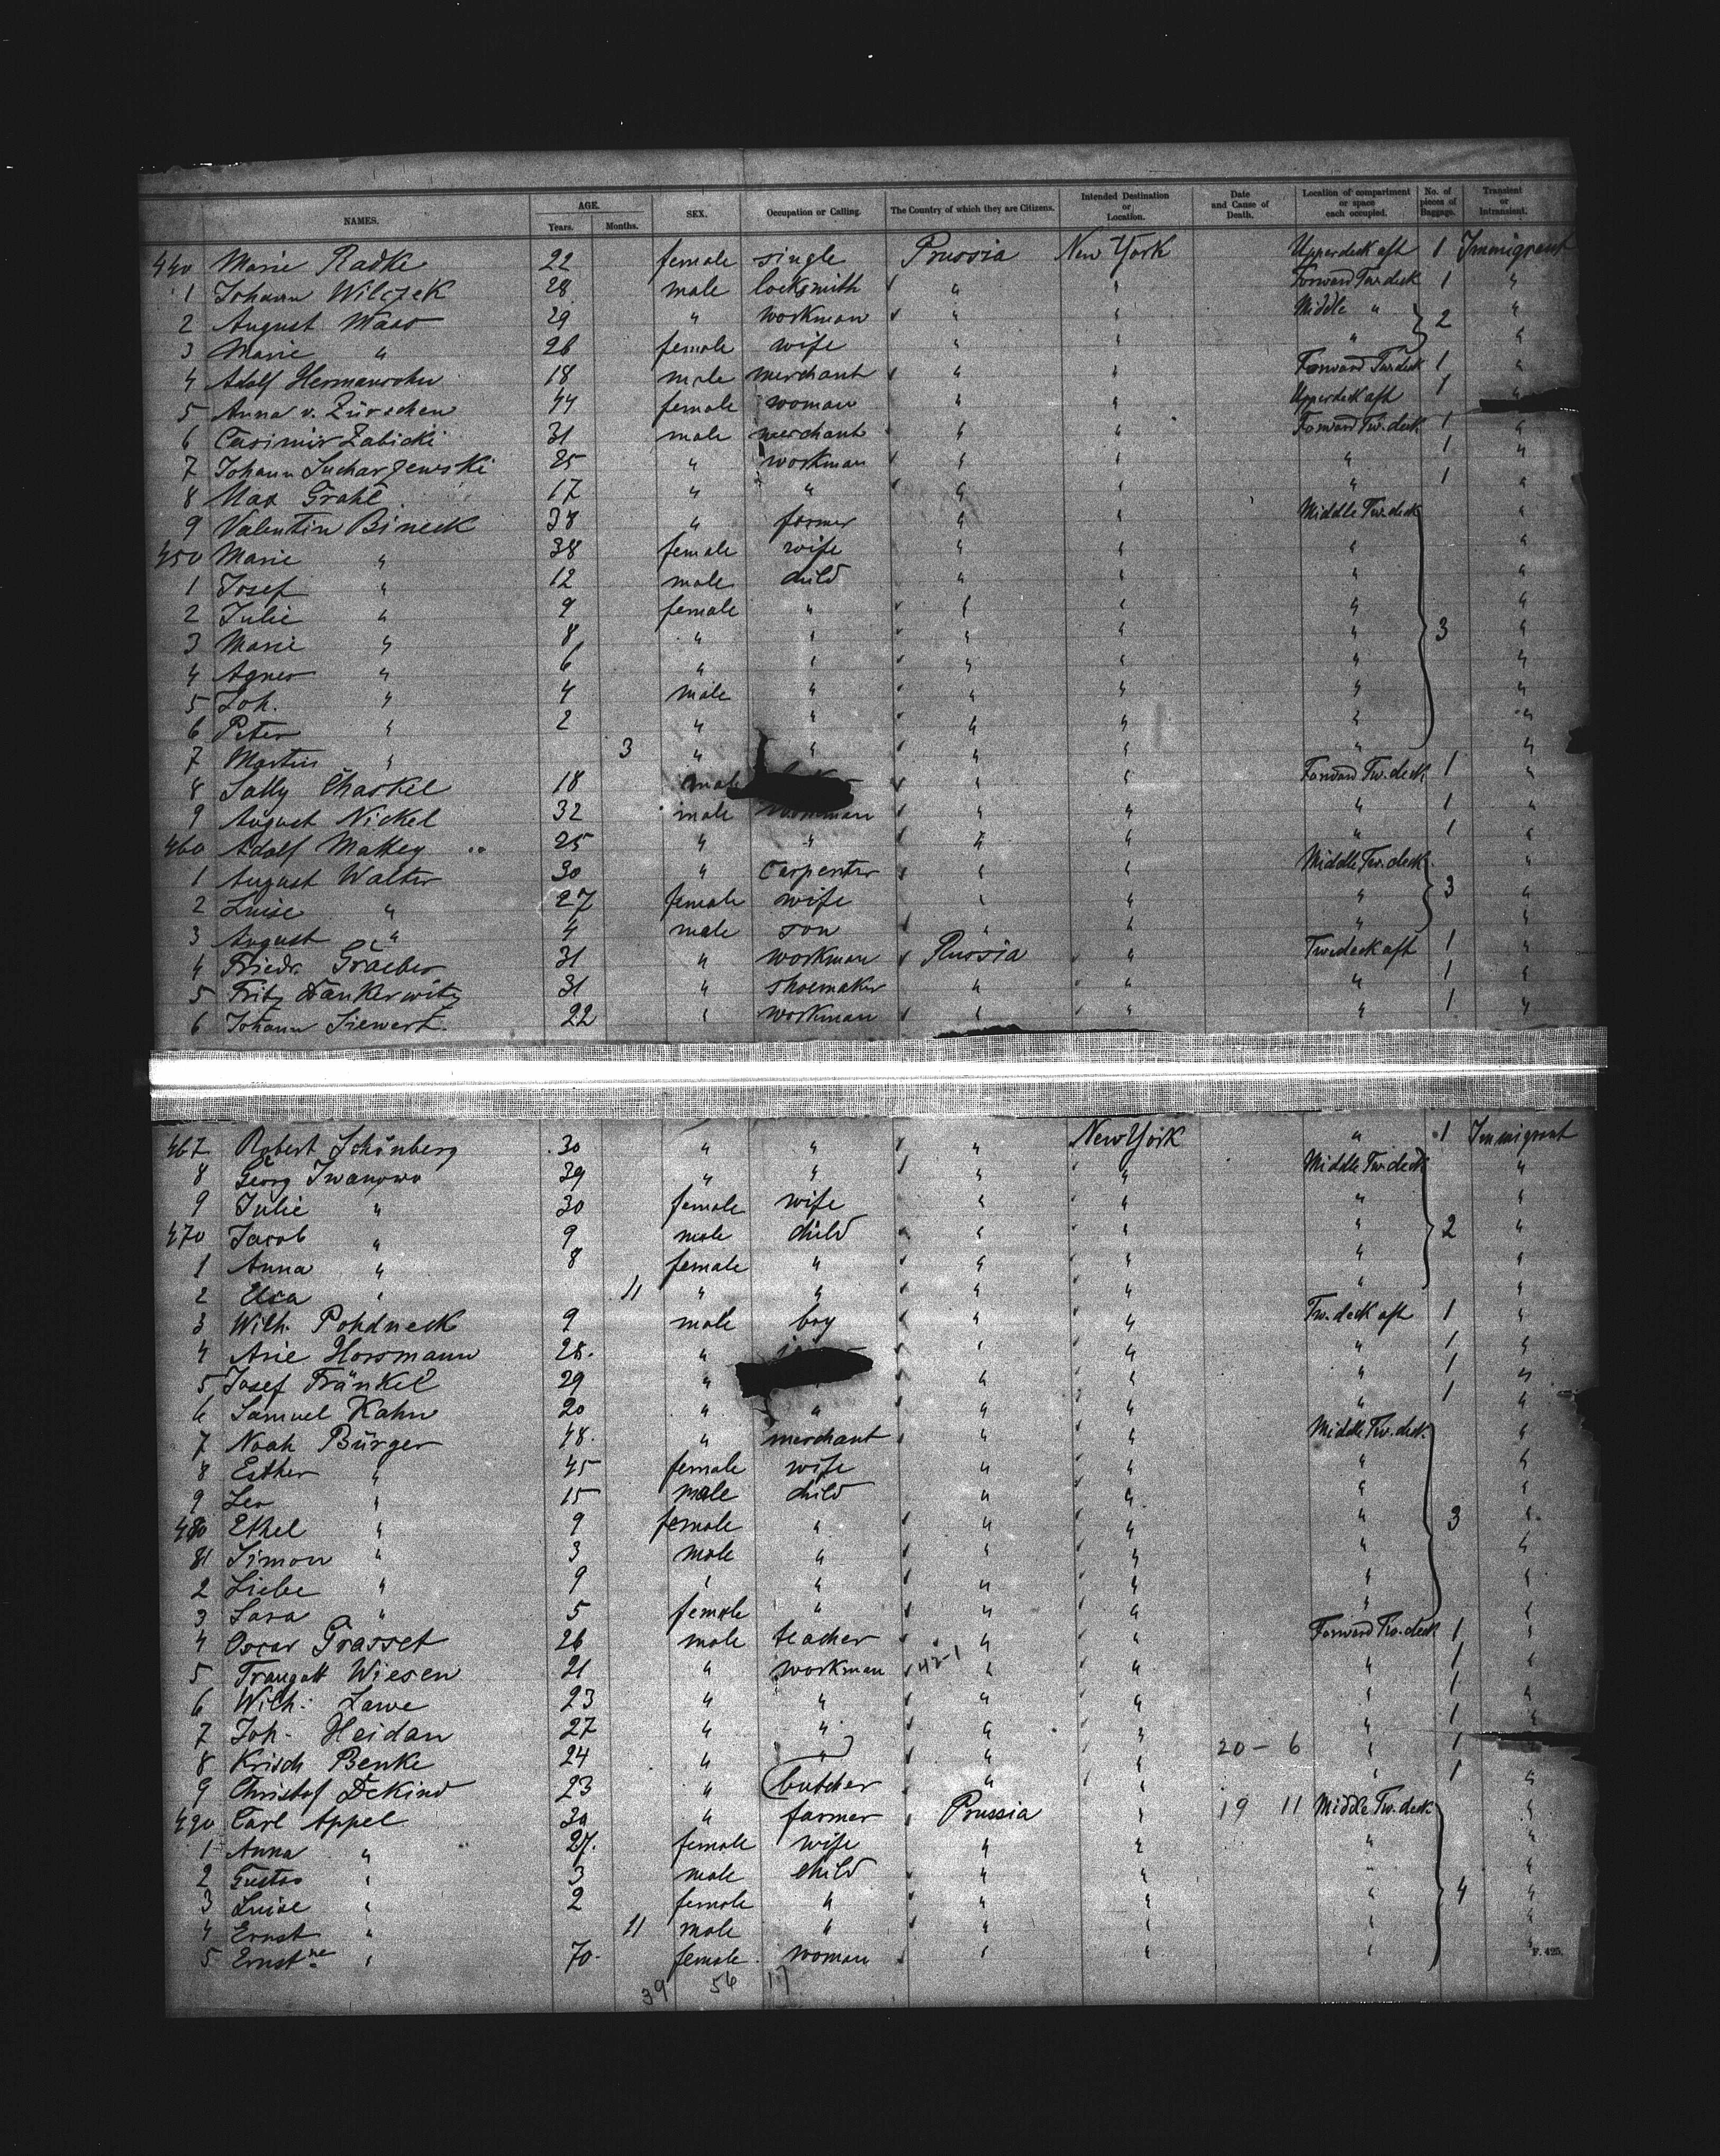 NAMES. AGE. Years. Months. SEX. Occupation or Calling. The Country of which they are Citizens. Intended Destination or Location. Date and Cause of Death. Location of compartment or space each occupied. No. of pieces of Baggage. Transient or Intransient.
440 Marie Radke 22 female single Prussia New York Upperdeck aft 1 Immigrant
1 Johann Wilczek 28 male locksmith " " Forward Tw.deck 1 "
2 August Waas 29 " workman " " Middle " 2 "
3 Marie " 26 female wife " " " "
4 Adolf Hermansohn 18 male merchant " " Forward Tw.deck 1 "
5 Anna v. Zürschen 44 female woman " " Upperdeck aft 1 "
6 Casimir Zabicki 31 male merchant " " Forward Tw.deck 1 "
7 Johann Sucharzewski 25 " workman " " " 1 "
8 Max Grahl 17 " " " " " 1 "
9 Valentin Bineck 38 " farmer " " Middle Tw.deck "
450 Marie " 38 female wife " " " "
1 Josef " 12 male child " " " "
2 Julie " 9 female " " " " "
3 Marie " 8 " " " " " 3 "
4 Agnes " 6 " " " " " "
5 Joh. " 4 male " " " " "
6 Peter " 2 " " " " " "
7 Martin " 3 " " " " " "
8 Sally Chaskel 18 male " " Forward Tw.deck 1 "
9 August Nickel 32 male workman " " " 1 "
460 Adolf Mattey 25 " " " " " 1 "
1 August Walter 30 " Carpenter " " Middle Tw.deck "
2 Luise " 27 female wife " " " 3 "
3 August " 4 male son " " " "
4 Friedr. Graeber 31 " workman Russia " Tw.deck aft 1 "
5 Fritz Dankerwitz 31 " shoemaker " " " 1 "
6 Johann Siewert. 22 " workman " " " 1 "
467 Robert Schönberg 30 " " " New York " 1 Immigrant
8 Georg Iwanowo 39 " " " " Middle Tw.deck "
9 Julie " 30 female wife " " " "
470 Jacob " 9 male child " " " 2 "
1 Anna " 8 female " " " " "
2 " 11 " " " " " "
3 Wilh. Pohdneck 9 male boy " " Tw.deck aft 1 "
4 Arie Horsmann 28. " " " " 1 "
5 Josef Fränkel 29 " " " " 1 "
6 Samuel Kahn 20 " " " " " 1 "
7 Noah Bürger 48. " merchant " " Middle Tw.deck "
8 Esther " 45 female wife " " " "
9 Leo " 15 male child " " " "
480 Ethel " 9 female " " " " 3 "
81 Simon " 3 male " " " " "
2 Liebe " 9 " " " " " "
3 Sara " 5 female " " " " "
4 Oscar Grasset 26 male teacher " " Forward Tw.deck 1 "
5 Traugott Wiesen 21 " workman 42-1 " " " 1 "
6 Wilh. Lawe 23 " " " " " 1 "
7 Joh. Heidan 27 " " " " " 1 "
8 Krisch Benke 24 " " " " 20-6 " 1 "
9 Christof Dekind 23 " butcher " " " 1 "
490 Carl Appel 30 " farmer Prussia " 19 11 Middle Tw.deck "
1 Anna " 27. female wife " " " "
2 Gustav " 3 male child " " " "
3 Luise " 2 female " " " " 4 "
4 Ernst " 11 male " " " " "
5 Ernst.ne " 70. female woman " " " "
39 56 17
F. 425.